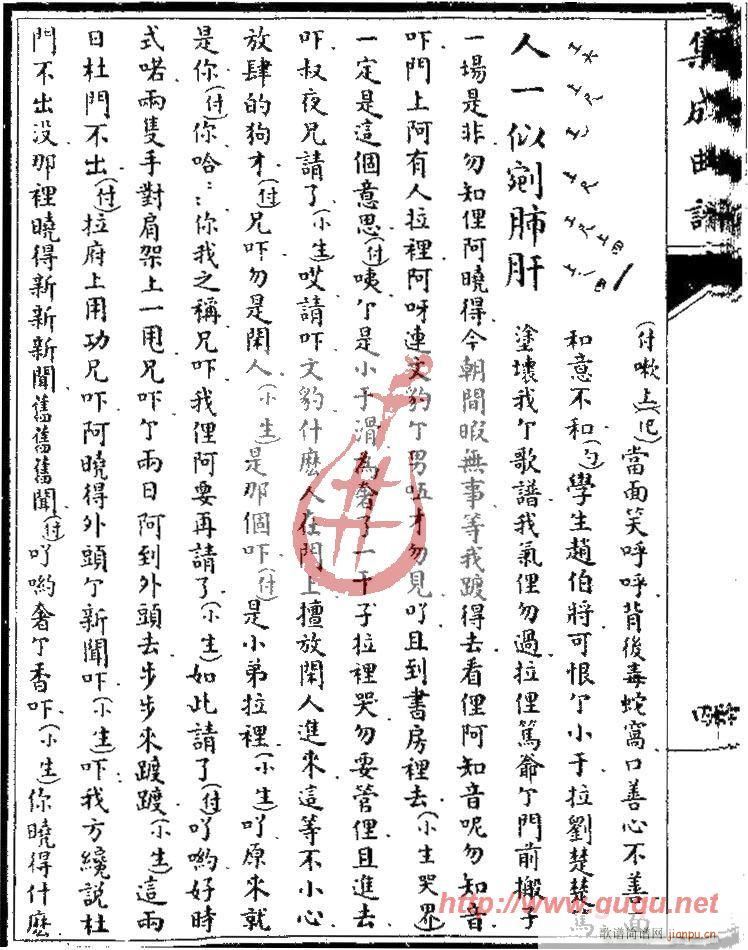 集成曲譜
人一似剜肺肝
(付嗽上)(咒)當面笑呼呼背後毒蛇窩口善心不善面
和意不和(白)學生趙伯將可恨个小于拉劉楚楚篤
塗壞我个歌譜我氣俚勿過拉俚篤爺个門前搬子
一場是非勿知俚阿曉得今朝間暇無事等我踱得去看俚阿知音呢勿知音
吓門上阿有人拉裡阿呀連文豹个男啞才勿見吖且到書房裡去(小生哭界)
一定是這個意思(付)咦个是小于滑為奢了一干子拉裡哭勿要管俚且進去
吓叔夜兄請了(小生)哎請吓文豹什麽人在門上擅放閑人進來這等不小心
放肆的狗才(付)兄吓勿是閑人(小生)是那個吓(付)是小弟拉裡(小生)吖原來就
是你(付)你哈⋮你我之稱兄吓我俚阿要再請了(小生)如此請了(付)吖喲好時
式喏兩隻手對肩架上一甩兄吓个兩日阿到外頭去步步來踱踱(小生)這兩
日杜門不出(付)拉府上用功兄吓阿曉得外頭个新聞吓(小生)吓我方纔説杜
門不出没那裡曉得新新新聞舊舊舊聞(付)吖喲奢个香吓(小生)你曉得什麽
http://www.gugu.net
歌谱简谱网
jianpu.cn